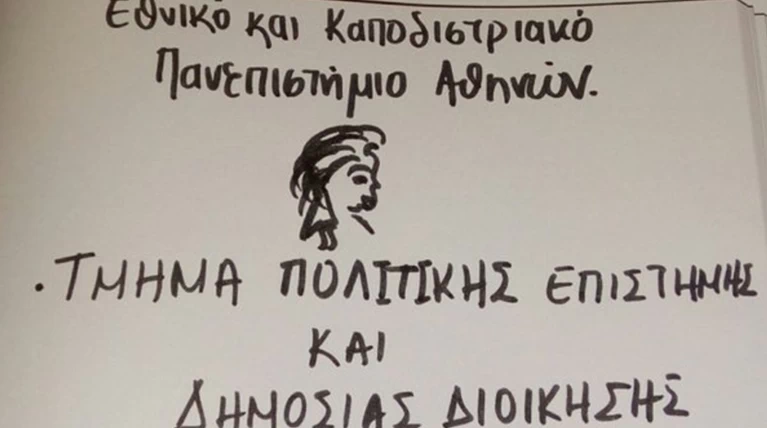 Εθνικό και Καποδιστριακό
Πανεπιστήμιο Αθηνών.
. ΤΜΗΜΑ ΠΟΛΙΤΙΚΗΣ ΕΠΙΣΤΗΜΗΣ
ΚΑΙ
ΔΗΜΟΣΙΑΣ ΔΙΟΙΚΗΣΗΣ